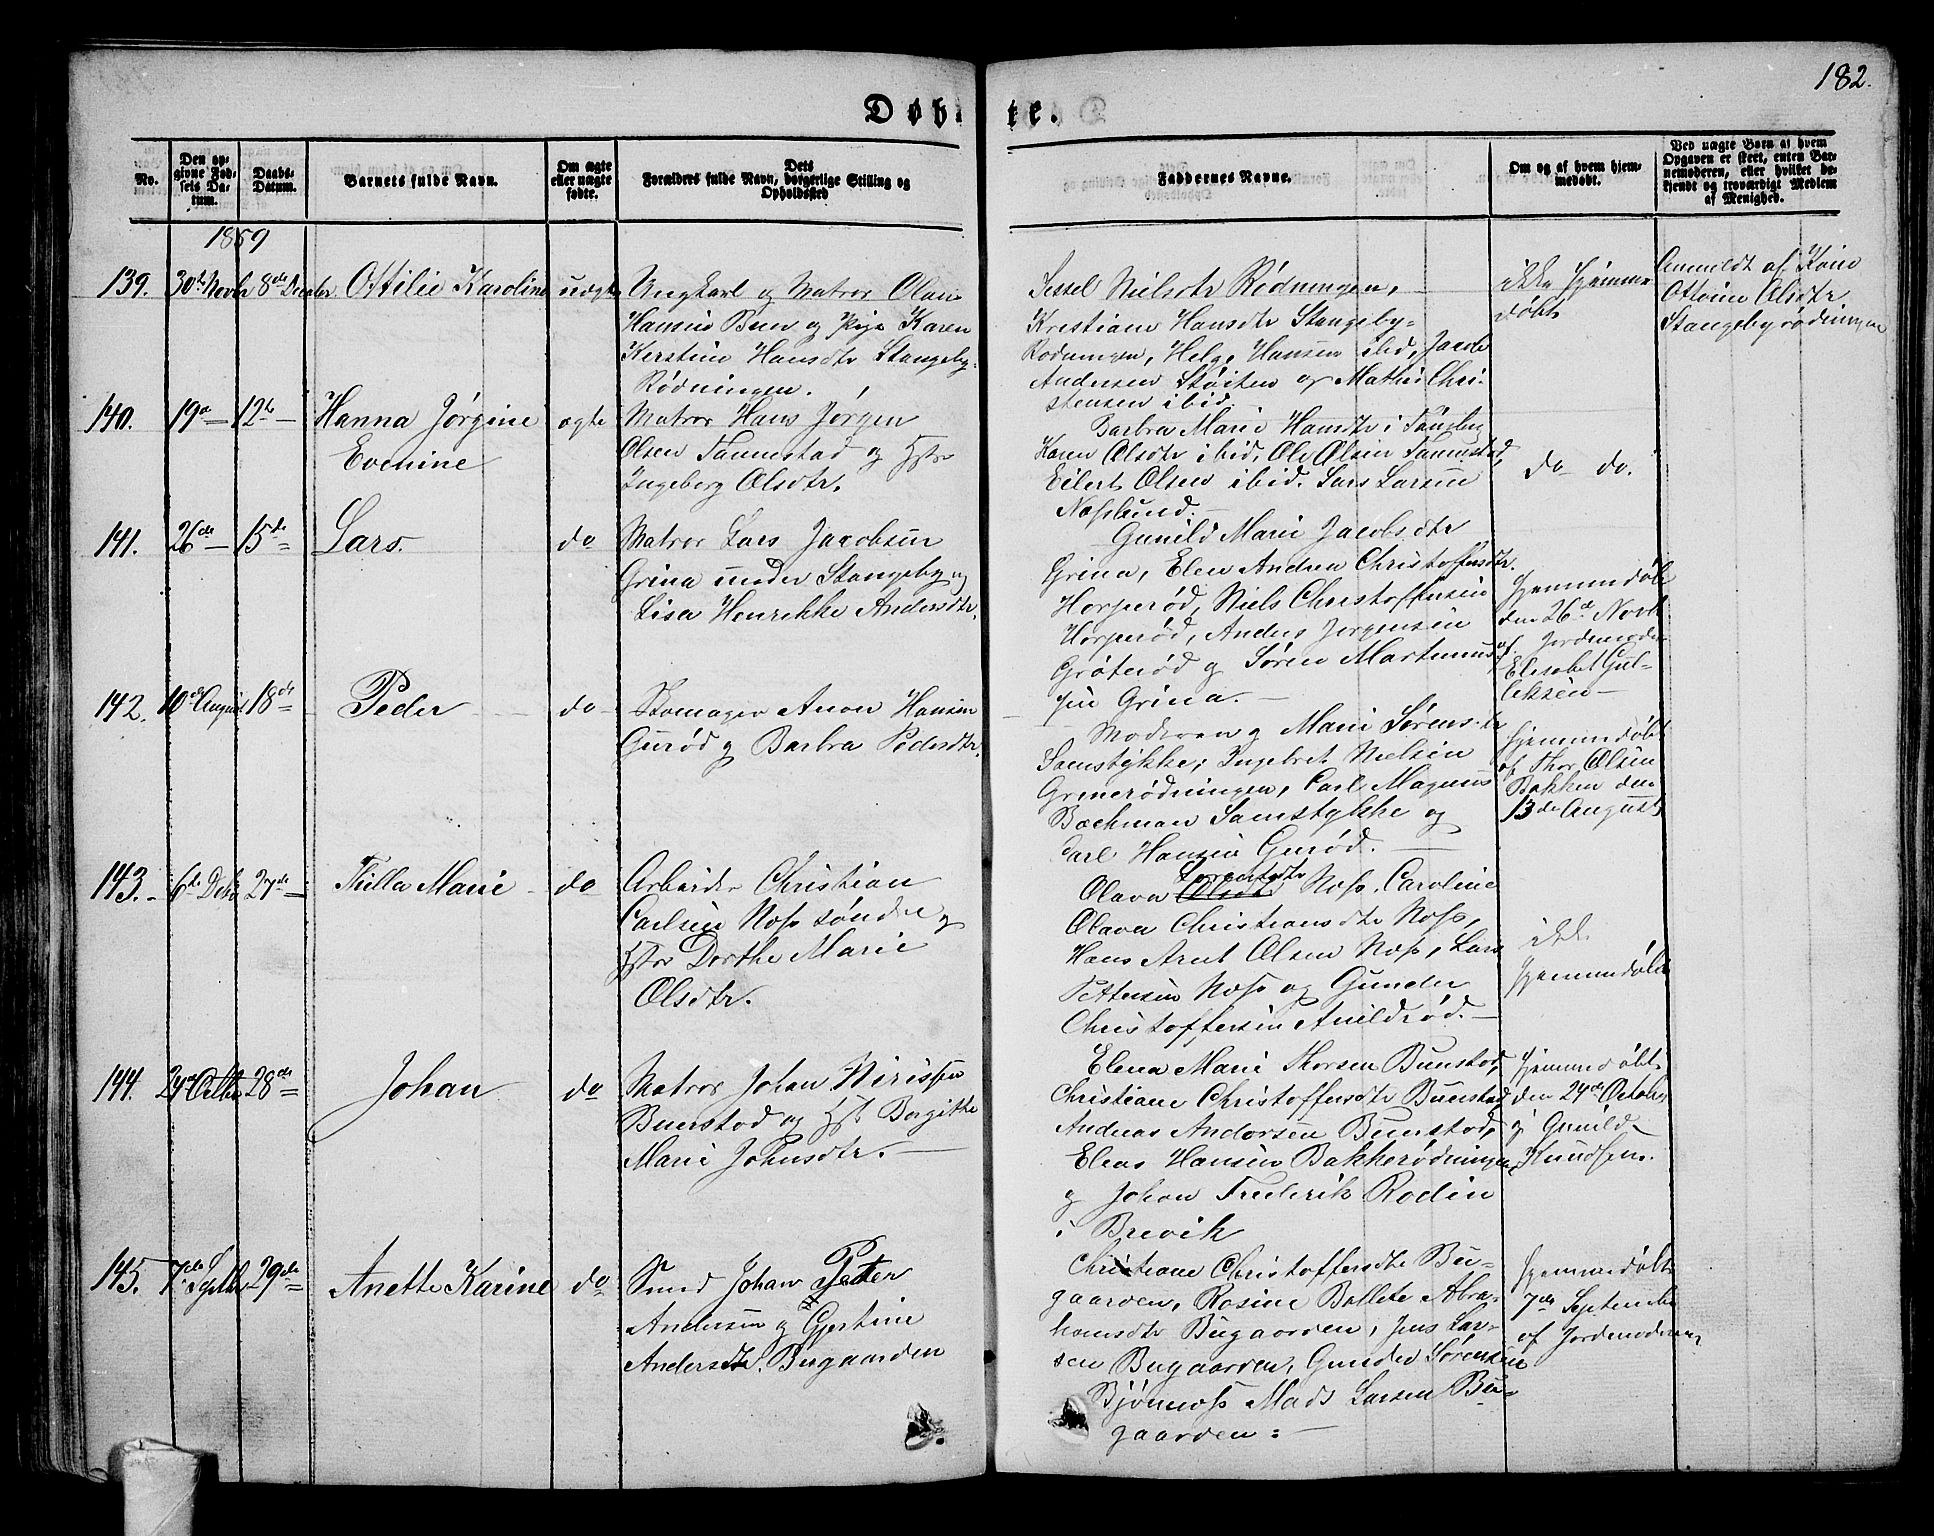 182.
Døbte.
No.
Den op-
givne Fød-
sels Da-
tum.
Daabs-
Datum.
Barnets fulde Navn.
Om ægte
eller uægte
fødte.
Dets
Forælders fulde Navn, borgerlige Stilling og
Opholdssted
Faddernes Navne.
Om og af hvem hjem-
medøbt.
Ved uægte Børn af hvem
Opgaven er skeet, enten Bar-
nemoderen, eller hvilket be-
kjendt og troværdigt Medlem
af Menighed.
1859
139. 30te Novbr 8de Decbr Ottilie Karoline uægte
Ungkarl og Matros Olaus
Hansen Buen og Pige Karen
Kerstine Hansdtr Stangeby-
Rødningen.
Sessel Nielsdtr Rødningen,
Kristiane Hansdtr Stangeby-
Rødningen, Helge Hansen ibid, Jacob
Andersen Støiten og Mathis Chri-
stensen ibid.
ikke hjemme
døbt
Anmeldt af Kone
Ottoine Olsdtr
Stangebyrødningen
140. 19de 12te Hanna Jørgine
Evenine
ægte
Matros Hans Jørgen
Olsen Tannestad og Hstr
Ingeborg Olsdtr.
Barbra Marie Hansdtr i Tønsberg
Karen Olsdtr ibid. Ole Olsen Tannestad,
Eilert Olsen ibid. Lars Larsen
Næslund.
do do.
141. 26de 15de Lars. do
Matros Lars Jacobsen
Grina under Stangeby og
Lisa Henrikke Andersdtr.
Gunild Marie Jacobsdtr
Grina, Elen Andrea Christoffersdtr.
Horperød, Niels Christoffersen
Horperød, Anders Jørgensen
Grøterød og Søren Martinus-
sen Grina.
Hjemmedøbt
den 26de Novbr
af Jordemoder
Elisabet Gul-
leksen
142. 10de August 18de Peder do
Skomager Anon Hansen
Gurød og Barbra Pedersdtr.
Moderen og Marie Sørensdtr
Samstykke, Ingebret Nielsen
Grinerødningen, Carl Magnus
Bæckman Samstykke og
Carl Hansen Gurød.
Hjemmedøbt
af Thor Olsen
Bakken den
13de August
143. 6te Decbr 27de Thilla Marie do
Arbeider Christian
Carlsen Næss søndre og
Hstr Dorthe Marie
Olsdtr.
Olava Olsdtr Lorentsdtr Næss, Caroline
Olava Christiansdtr Næss,
Hans Arnt Olsen Næss, Lars
Pettersen Næss og Gunder
Christoffersen Anildrød.
ikke
hjemmedøbt
144. 24de Octbr 28de Johan do
Matros Johan Nirissen
Buerstad og Hst Birgitte
Marie Johnsdtr.
Elena Marie Thorsen Buerstad,
Christiane Christoffersdtr Buerstad
Andreas Andersen Buerstad,
Elias Hansen Bakkerødningen
og Johan Frederik Rodin
i Brevik
Hjemmedøbt
den 24de October
af Gunild
Knudsen.
145. 7de Septbr 29de Anette Karine do
Smed Johan Peter
Andersen og Gjertine
Andersdtr. Bugaarden
Christiane Christoffersdtr Bu-
gaarden, Rosine Bollete Abra-
hamsdtr Bugaarden, Jens Lar-
sen Bugaarden, Gunder Sørensen
Bjønnæss Mads Larsen Bu-
gaarden:
Hjemmedøbt
7de September
af Jordemoderen